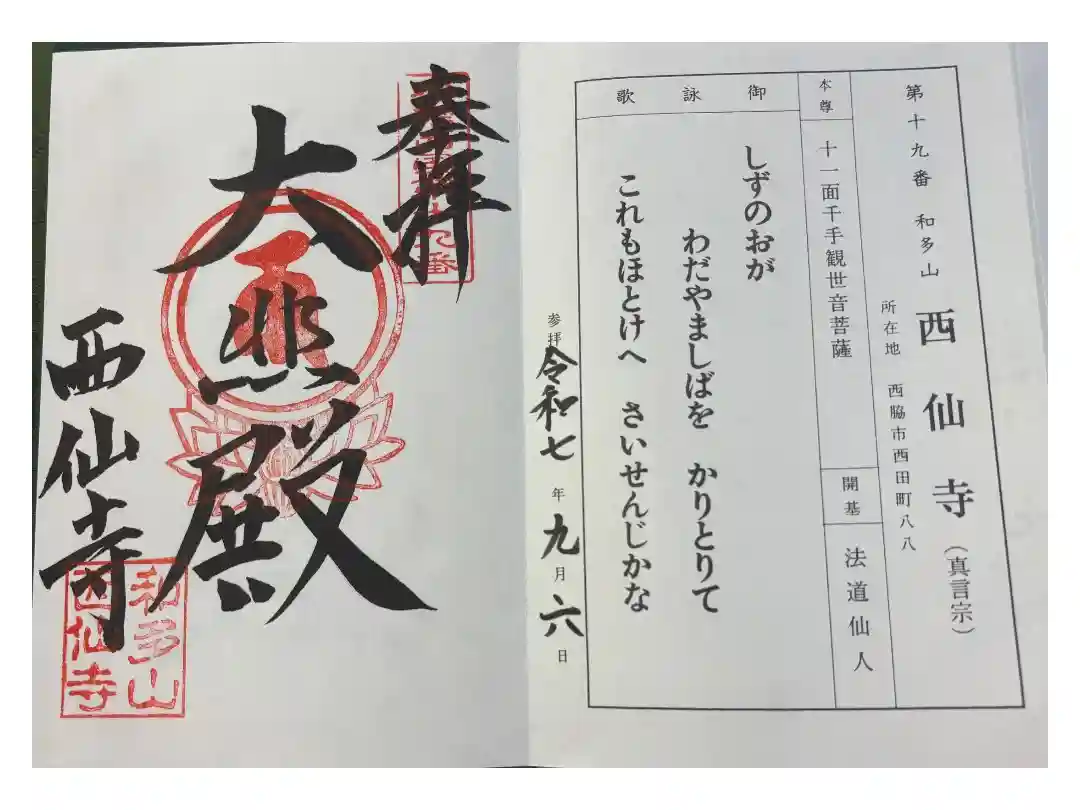 第十九番 和多山 西仙寺（真言宗）
所在地 西脇市西田町八八
本尊 十一面千手観世音菩薩
開基 法道仙人
御詠歌
しずのおが
わだやましばを かりとりて
これもほとけへ さいせんじかな
参拝 令和七年九月六日
奉拝
大悲殿
西仙寺
和多山
西仙寺